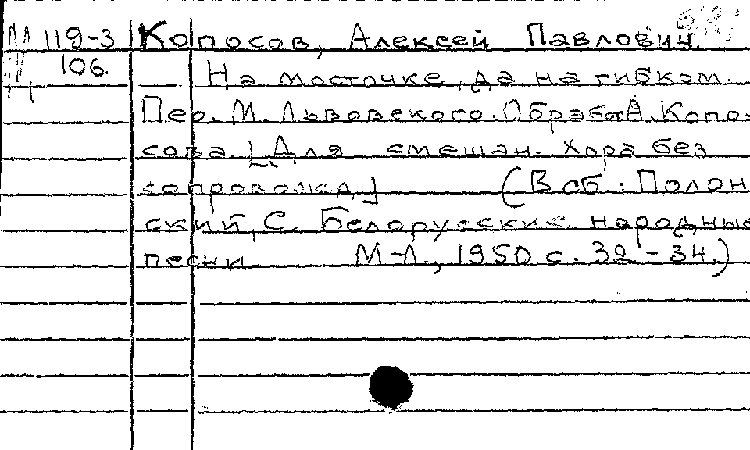 119-3 Копосов, Алексей Павлович
106. На мосточке, да на гибком.
Пер. М. Львовского. Обраб. А. Копо-
сова. [Для смешан. хора без
сопровожд.] (В сб.: Полон-
ский, С. Белорусские народные
песни М-Л., 1950 с. 32-34.)